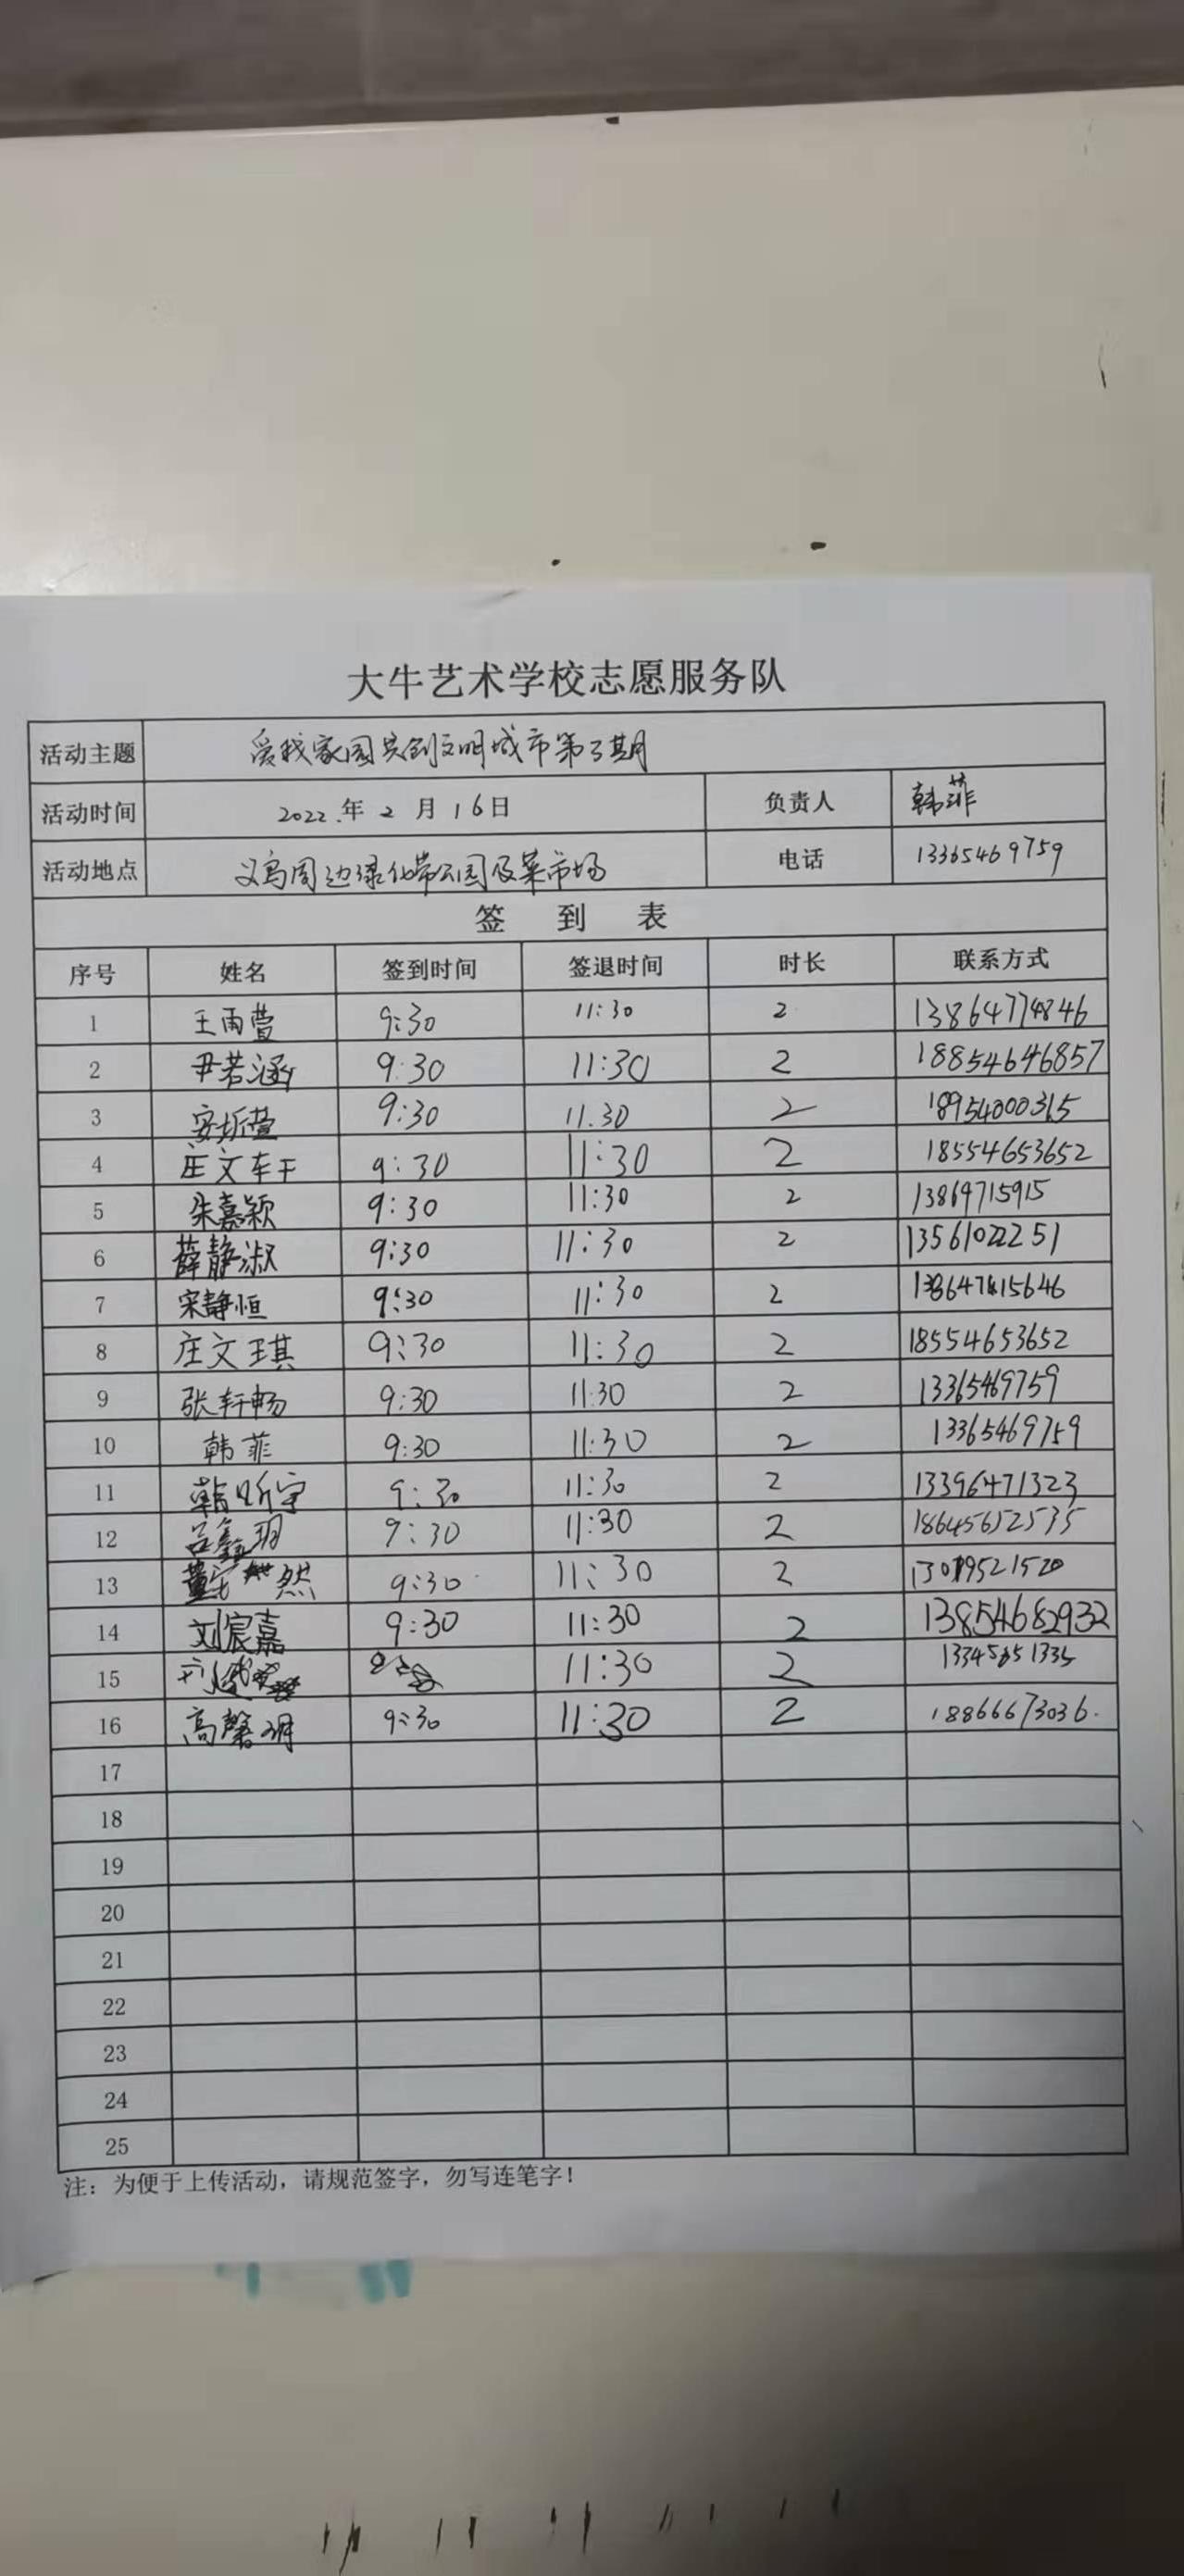 大牛艺术学校志愿服务队
活动主题 爱我家园共创文明城市第3期
活动时间 2022.年 2 月 16日 负责人 韩菲
活动地点 义乌周边绿化带公园及菜市场 电话 13365469759
签 到 表
序号 姓名 签到时间 签退时间 时长 联系方式
1 王雨萱 9:30 11:30 2 13864774846
2 尹若涵 9:30 11:30 2 18854646857
3 安圻萱 9:30 11.30 2 18954000315
4 庄文 9:30 11:30 2 18554653652
5 朱嘉颖 9:30 11:30 2 13869715915
6 薛静淑 9:30 11:30 2 13561022251
7 宋静恒 9:30 11:30 2
8 庄文琪 9:30 11:30 2 18554653652
9 张轩畅 9:30 11:30 2 13365469759
10 韩菲 9:30 11:30 2 13365469759
11 韩昕宇 9:30 11:30 2 13396471323
12 吕鑫羽 9:30 11:30 2 18645652535
13 然 9:30 11:30 2
14 刘宸嘉 9:30 11:30 2 13854682932
15 11:30 2
16 高馨玥 9:30 11:30 2 18866673036.
17
18
19
20
21
22
23
24
25
注：为便于上传活动，请规范签字，勿写连笔字！